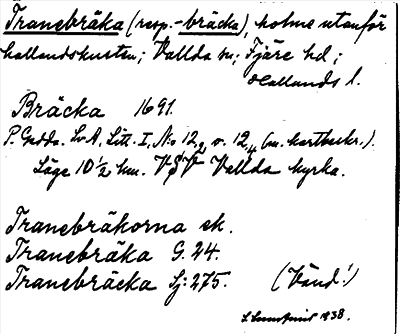 Tranebräka (resp. -bräcka), holme utanför
hallandskusten; Vallda sn; Fjäre hd;
Hallands l.
Bräcka 1691.
P. Gedda. Lv A, Litt. I, No 12₂ o. 12₄ (m. kartbeskr.).
Läge 10½ km. VSV Vallda kyrka.
Tranebräkorna ek.
Tranebräka G. 24.
Tranebräcka Sj: 275. (Vänd!)
1938.